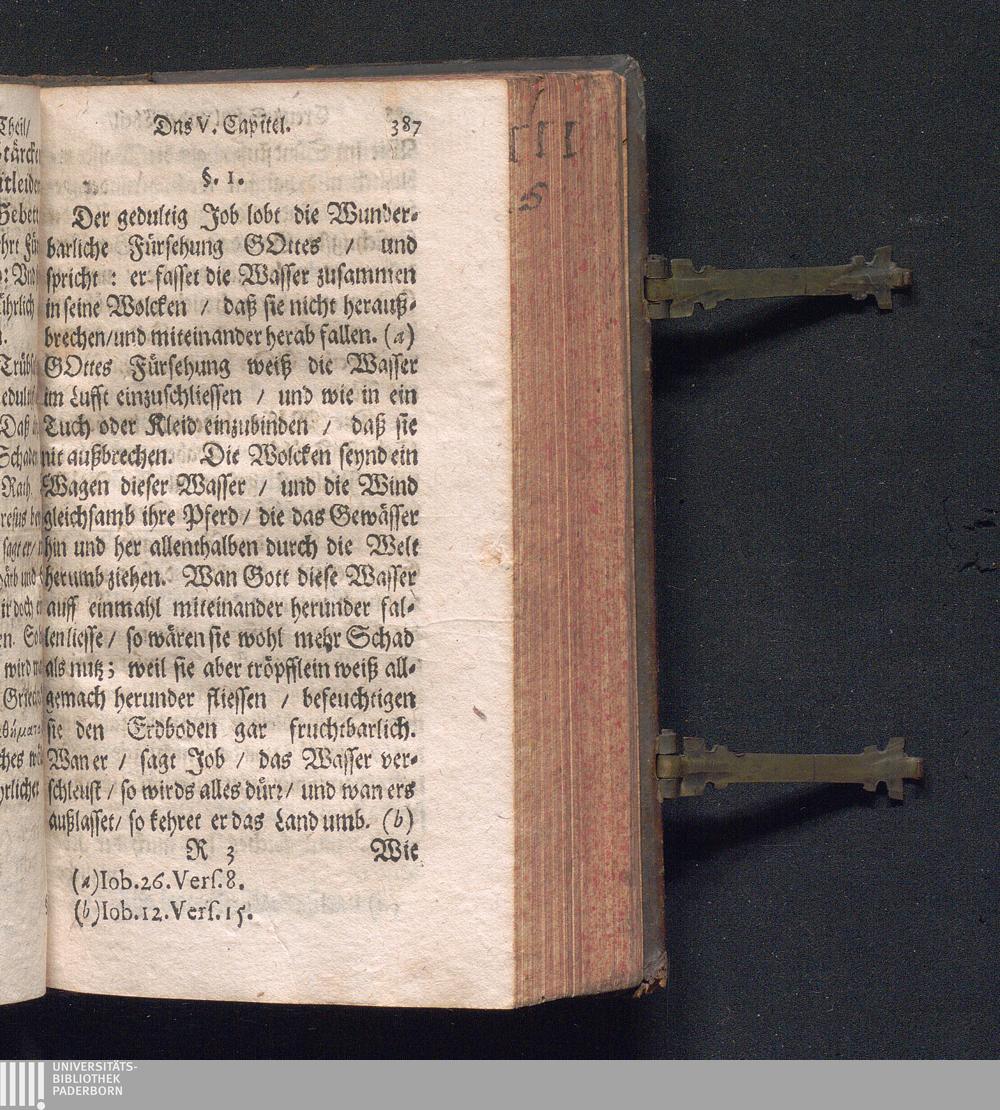 Das V. Capitel. 387
§. 1.
Der gedultig Job lobt die Wunder-
barliche Fürsehung GOttes / und
spricht: er fasset die Wasser zusammen
in seine Wolcken / daß sie nicht herauß-
brechen/und miteinander herab fallen. (a)
GOttes Fürsehung weiß die Wasser
im Lufft einzuschliessen / und wie in ein
Tuch oder Kleid einzubinden / daß sie
nit außbrechen. Die Wolcken seynd ein
Wagen dieser Wasser / und die Wind
gleichsamb ihre Pferd / die das Gewässer
hin und her allenthalben durch die Welt
herumb ziehen. Wan Gott diese Wasser
auff einmahl miteinander herunder fal-
len liesse / so wären sie wohl mehr Schad
als nutz; weil sie aber tröpfflein weiß all-
gemach herunder fliessen / befeuchtigen
sie den Erdboden gar fruchtbarlich.
Wan er / sagt Job / das Wasser ver-
schleust / so wirds alles dürr / und wan ers
außlasset / so kehret er das Land umb. (b)
R 3 Wie
(a) Iob.26.Vers.8.
(b) Iob.12.Vers.15.
Theil/
III
S
UNIVERSITÄTS-
BIBLIOTHEK
PADERBORN